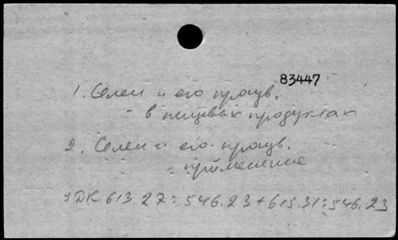 83447
1. Селен и его произв.
- в пищевых продуктах
2. Селен и его произв.
- применение
УДК 613.27:546.23+615.31:546.23